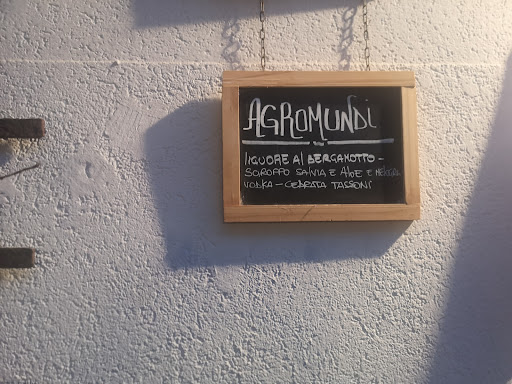 AGROMUNDI
LIQUORE AL BERGAMOTTO -
SCIROPPO SALVIA E ALOE E
VODKA - CEDRATA TASSONI